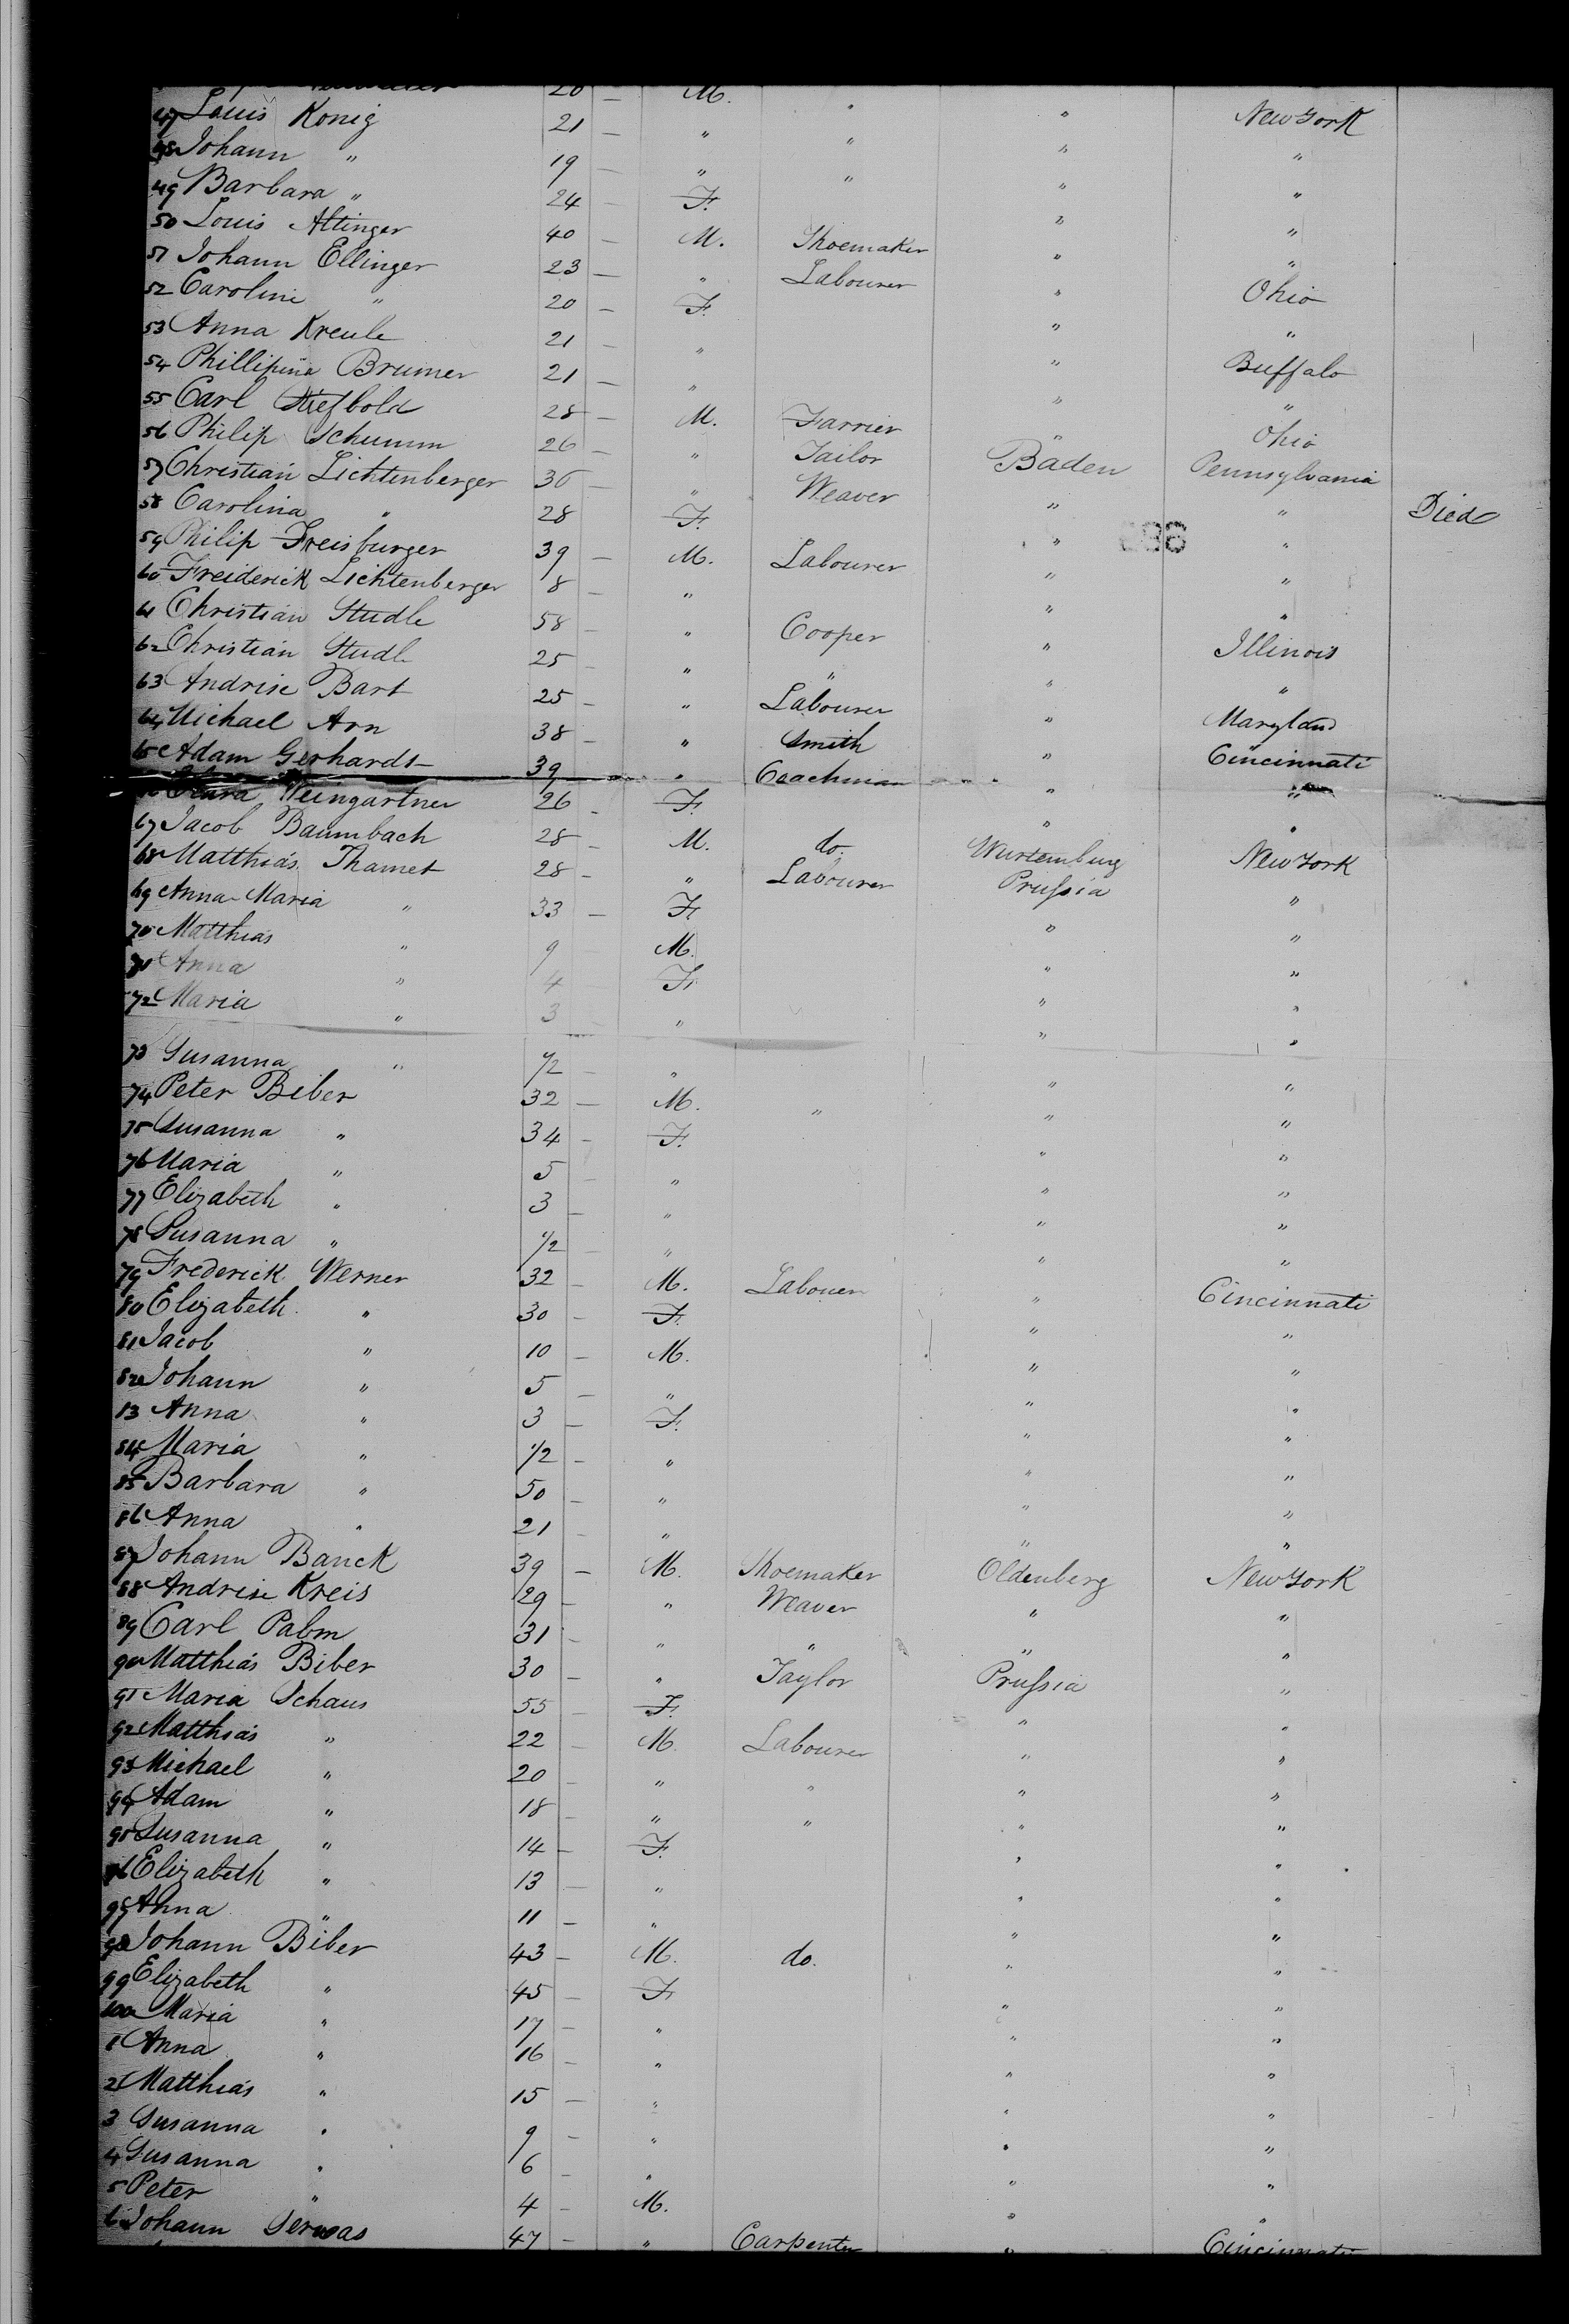 20 — M. " "
47 Louis Konig 21 — " " " New York
48 Johann " 19 — " " " "
49 Barbara " 24 — F. " "
50 Louis Altinger 40 — M. Shoemaker " "
51 Johann Ellinger 23 — " Labourer " Ohio
52 Caroline " 20 — F. " "
53 Anna Kreule 21 — " " Buffalo
54 Phillipina Brumer 21 — " " "
55 Carl Stiefbold 28 — M. Farrier " Ohio
56 Philip Schumm 26 — " Tailor Baden Pennsylvania
57 Christian Lichtenberger 36 — " Weaver " "
58 Carolina " 28 F. " " Died
59 Philip Freisburger 39 — M. Labourer " "
60 Freiderick Lichtenberger 8 — " " "
61 Christian Studle 58 — " Cooper " Illinois
62 Christian Studl 25 — " " " "
63 Andrise Bart 25 — " Labourer " Maryland
64 Michael Arn 38 — " Smith " Cincinnati
65 Adam Gerhardt 39 — " Coachman " "
Weingartner 26 — F. " "
67 Jacob Baumbach 28 — M. do. Wurtemburg New York
68 Matthias Thamet 28 — " Labourer Prussia "
69 Anna Maria " 33 — F. " "
70 Matthias " 9 M. " "
71 Anna " 4 F. " "
72 Maria " 3 " " "
73 Susanna " 1/2 — " " "
74 Peter Biber 32 — M. " " "
75 Susanna " 34 — F. " "
76 Maria " 5 — " " "
77 Elizabeth " 3 — " " "
78 Susanna " 1/2 — " " "
79 Frederick Werner 32 — M. Labouer " Cincinnati
80 Elizabeth " 30 — F. " "
81 Jacob " 10 — M. " "
82 Johann " 5 — " " "
83 Anna " 3 — F. " "
84 Maria " 1/2 — " " "
85 Barbara " 50 — " " "
86 Anna " 21 — " " "
87 Johann Banck 39 — M. Shoemaker Oldenberg New York
88 Andrise Kreis 29 — " Weaver " "
89 Carl Palm 31 — " " " "
90 Matthias Biber 30 — " Taylor Prussia "
91 Maria Schaus 55 — F. " "
92 Matthias " 22 — M. Labourer " "
93 Michael " 20 — " " " "
94 Adam " 18 — " " " "
95 Susanna " 14 — F. " "
96 Elizabeth " 13 — " " "
97 Anna " 11 — " " "
98 Johann Biber 43 — M. do. " "
99 Elizabeth " 45 — F. " "
100 Maria " 17 — " " "
1 Anna " 16 — " " "
2 Matthias " 15 — " " "
3 Susanna " 9 — " " "
4 Susanna " 6 — " " "
5 Peter " 4 — M. " "
6 Johann Serwas 47 — " Carpenter " Cincinnati